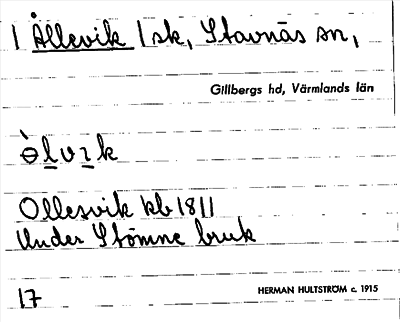 1 Ållevik 1 sk, Stavnäs sn,
Gillbergs hd, Värmlands län
ɵ̀lvɪk
Ollesvik kb 1811
Under Stömne bruk
17
HERMAN HULTSTRÖM c. 1915